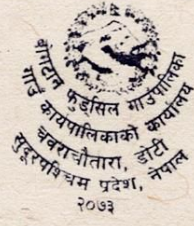 बोगटान फुड्सिल गाउँपालिका
गाउँ कार्यपालिकाको कार्यालय
चवराचौतारा, डोटी
सुदूरपश्चिम प्रदेश, नेपाल
२०७३